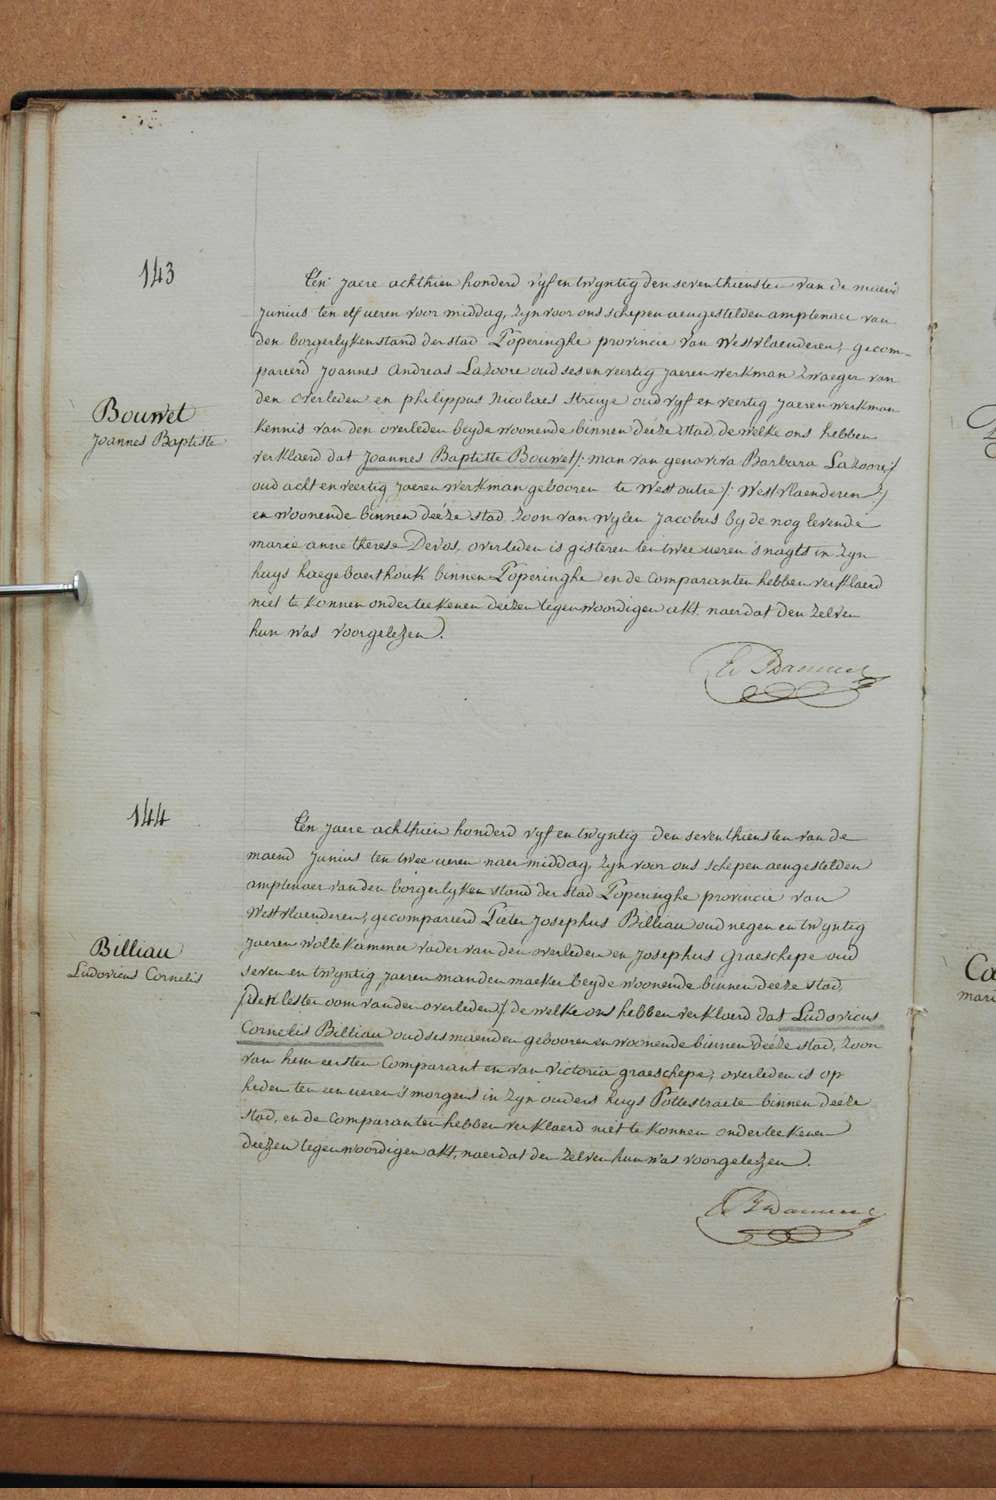 143
Bouwet
Joannes Baptiste
Een jaere achthien honderd vyf en twyntig den seventhiensten van de maend
Junius ten elf ueren voor middag, zyn voor ons schepen aengestelden amptenaer van
den borgerlyken stand der stad Poperinghe provincie van Westvlaenderen, gecom-
pareerd Joannes Andreas Lazoore oud ses en veertig jaeren werkman zwaeger van
den overleden en philippus Nicolaes Struye oud vyf en veertig jaeren werkman
kennis van den overleden beyde woonende binnen deeze stad, de welke ons hebben
verklaerd dat Joannes Baptiste Bouwet /: man van genoveva Barbara Lazoore :/
oud acht en veertig jaeren werkman gebooren te Westoutre /: Westvlaenderen :/
en woonende binnen deeze stad zoon van wylen Jacobus by de nog levende
marie anne therese Devos, overleden is gisteren ten twee ueren 's nagts in zyn
huys haegebaerthouk binnen Poperinghe en de comparanten hebben verklaerd
niet te konnen onderteekenen deezen tegenwoordigen akt naer dat den zelven
hun was voorgelezen.
144
Billiau
Ludovicus Cornelis
Een jaere achthien honderd vyf en twyntig den seventhiensten van de
maend Junius ten twee ueren naer middag, zyn voor ons schepen aengestelden
amptenaer van den borgerlyken stand der stad Poperinghe provincie van
Westvlaenderen, gecompareerd Pieter Josephus Billiau oud negen en twyntig
jaeren wollekammer vader van den overleden en Josephus Graeschepe oud
seven en twyntig jaeren manden maeker beyde woonende binnen deeze stad,
/den lesten oom van den overleden/ de welke ons hebben verklaerd dat Ludovicus
Cornelis Billiau oud ses maenden gebooren en woonende binnen deeze stad, zoon
van hem eersten Comparant en van Victoria graeschepe, overleden is op
heden ten een ueren 's morgens in zyn ouders huys Pottestraete binnen deeze
stad, en de comparanten hebben verklaerd niet te konnen onderteekenen
deezen tegenwoordigen akt, naer dat den zelven hun was voorgelezen.